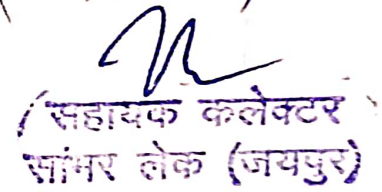 ( सहायक कलेक्टर )
सांभर लेक (जयपुर)